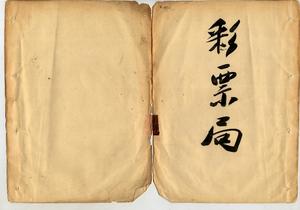 彩票局